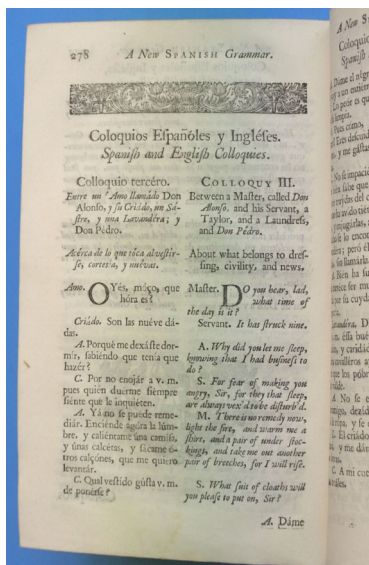 278 A New SPANISH Grammar.
Coloquios Eſpañoles y Ingléſes.
Spaniſh and Engliſh Colloquies.
Colloquio tercéro.
Entre un Amo llamádo Don
Alonſo, y ſu Criádo, un Sá-
ſtre, y una Lavandéra; y
Don Pédro.
Acérca de lo que tóca al veſtir-
ſe, corteſia, y nuévas.
Amo. OYés, móço, que
hóra es?
Criádo. Son las nuéve dá-
das.
A. Porquè me dexáſte dor-
mir, ſabiéndo que tenía que
hazér?
C. Por no enojár a v. m.
pues quién duérme ſiémpre
ſiénte que le inquiéten.
A. Yá no ſe puéde reme-
diár. Enciénde agóra la lúm-
bre, y caliéntame úna camíſa,
y únas calcétas, y ſácame ó-
tros calçónes, que me quiéro
levantár.
C. Qual veſtído gúſta v. m.
de ponérſe?
COLLOQUY III.
Between a Maſter, called Don
Alonſo, and his Servant, a
Taylor, and a Laundreſs,
and Don Pédro.
About what belongs to dreſ-
ſing, civility, and news.
Maſter. DO you hear, lad,
what time of
the day is it?
Servant. It has ſtruck nine.
A. Why did you let me ſleep,
knowing that I had buſineſs to
do?
S. For fear of making you
angry, Sir, for they that ſleep,
are always vex'd to be diſturb'd.
M. There is no remedy now,
light the fire, and warm me a
ſhirt, and a pair of under ſtoc-
kings, and take me out another
pair of breeches, for I will riſe.
S. What ſuit of cloaths will
you pleaſe to put on, Sir?
A. Dáme
A New S
Coloquio
Spaniſh